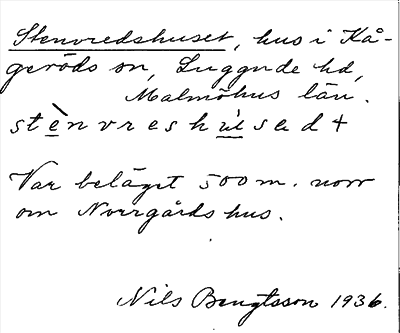 Stenvredshuset, hus i Kå-
geröds sn, Luggude hd,
Malmöhus län.
stènvreshúsad +
Var beläget 500 m. norr
om Norrgårds hus.
Nils Bengtsson 1936.